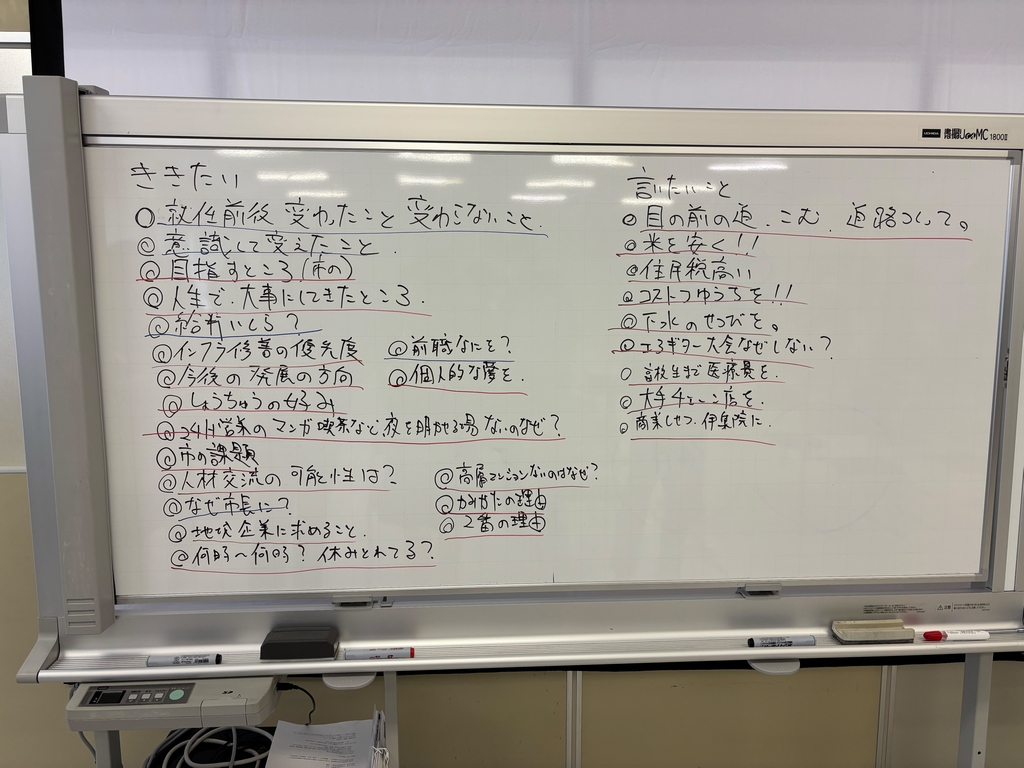 ききたい
○就任前後 変わったこと 変わらないこと.
◎意識して変えたこと.
◎目指すところ(市の)
◎人生で、大事にしてきたところ.
◎給料いくら?
◎インフラ修善の優先度
◎前職なにを?
◎今後の発展の方向
◎個人的な夢を.
◎しょうちゅうの好み
◎24H営業のマンガ喫茶など、夜を明かせる場ないのなぜ?
◎市の課題
◎人材交流の可能性は?
◎高層マンションないのはなぜ?
◎なぜ市長に?
◎かみかたの理由
◎地域企業に求めること.
◎2番の理由
◎何時~何時? 休みとれてる?
言いたいこと
◎目の前の道、こむ、道路つくって。
◎米を安く!!
◎住民税高い
◎コストコゆうちを!!
◎下水のせつびを。
◎エアギター大会なぜしない?
○高校生まで医療費を.
◎大手チェーン店を.
○商業しせつ、伊集院に.
UCHIDA
1800II